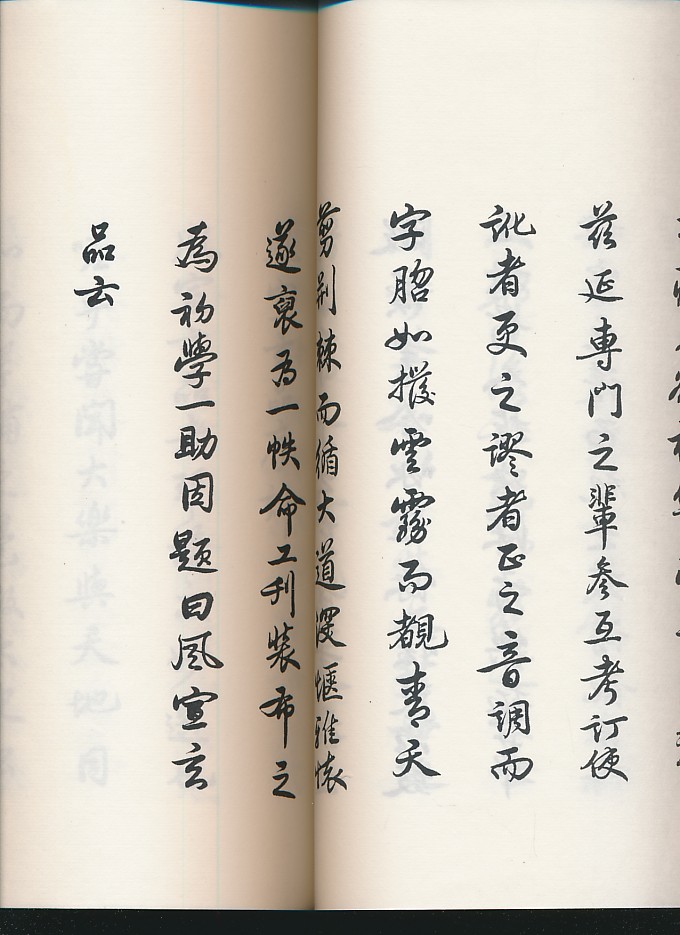 茲延專門之輩參互考訂使
訛者更之謬者正之音調而
字如撥雲霧而覩青天
剪荆棘而循大道深愜雅懷
遂裒为一帙命工刊裝布之
為初學一助因題曰風宣玄
品云